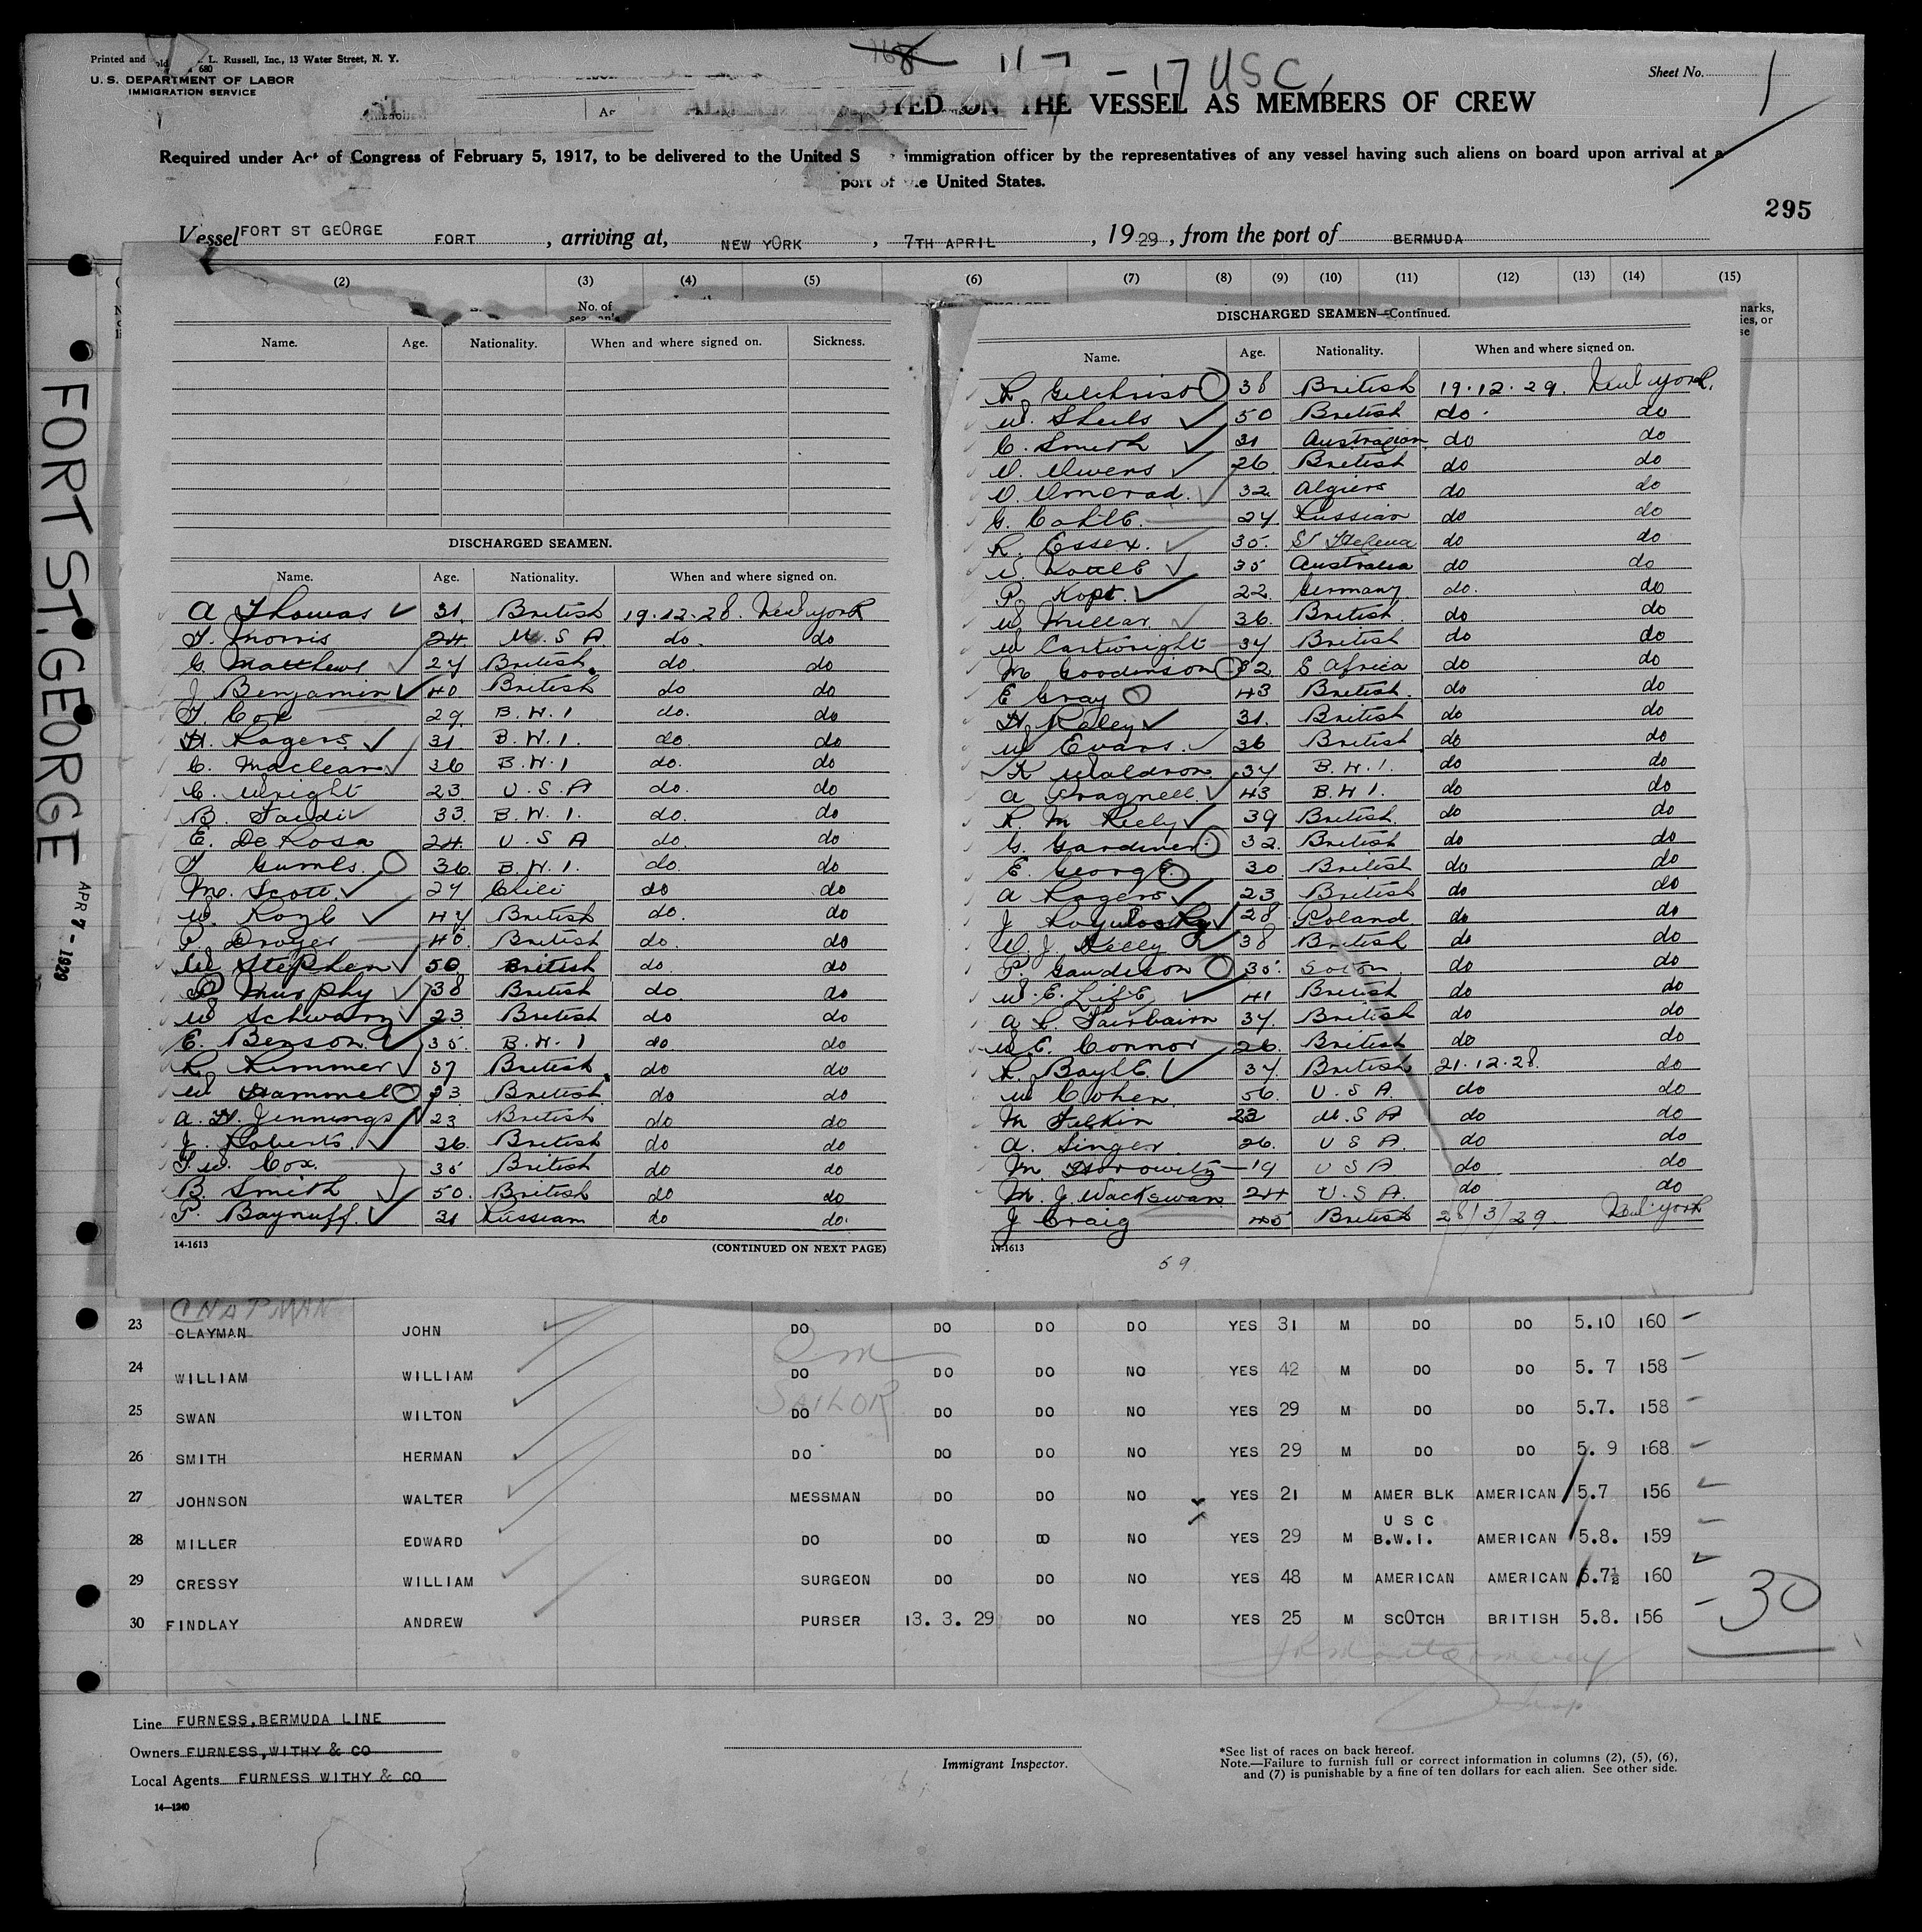 Printed and L. Russell, Inc., 13 Water Street, N. Y.
680
U. S. DEPARTMENT OF LABOR
IMMIGRATION SERVICE
168 117 - 17 U S C,
Sheet No. 1
ON THE VESSEL AS MEMBERS OF CREW
Required under Act of Congress of February 5, 1917, to be delivered to the United S immigration officer by the representatives of any vessel having such aliens on board upon arrival at a
port of the United States.
295
Vessel FORT ST GEORGE FORT , arriving at, NEW YORK , 7TH APRIL , 1929, from the port of BERMUDA
(2) (3) (4) (5) (6) (7) (8) (9) (10) (11) (12) (13) (14) (15)
No. of
Name. Age. Nationality. When and where signed on. Sickness.
DISCHARGED SEAMEN.
Name. Age. Nationality. When and where signed on.
A Thomas 31. British 19.12.28. New York
T. Morris 24. U. S A do. do
G Matthews 27 British do. do
J Benjamin 40 British do do
T. Cox 29. B. W. 1 do. do
H. Rogers. 31. B. W. 1. do. do
C. Maclean 36 B. W. 1 do. do
C. Wright 23 U. S. A do. do
B. 33. B. W. 1. do. do
E. De Rosa 24. U S A do. do
T Gumbs. 36. B. W. 1. do. do
Mc. Scott 27 Chili do do
W. 47 British do. do
P. 40. British do. do
W Stephen 50 British do. do
P Murphy 38 British do. do
W Schwarz 23 British do do
E. Benson. 35. B. W. 1 do. do
R Rimmer 37 British. do do
W Hammel 23. British do do
A. H. Jennings 23 British do do
J. Roberts. 36. British do do
T. W. Cox. 35 British do do
B. Smith 50. British do do
P. Baynuff. 31 Russian do do.
14-1613 (CONTINUED ON NEXT PAGE)
DISCHARGED SEAMEN—Continued.
Name. Age. Nationality. When and where signed on.
R Gilchrist 38 British 19.12.29. New York.
W. Sheils 50 British do. do
C. Smith 31 do do
O. Owens 26. British do do
O. 32. Algiers do do
G. 27 Russian do do
R. Essex. 35. St Helena do do
35 Australia do do
P. Kopt. 22. Germany do. do
W Millar. 36. British. do do
W Cartwright 37 British do do
M Goodinson 32 S Africa do do
E Gray 43 British. do do
H. 31. British do do
W Evans. 36 British do do
K Waldron 37 B. W. 1. do do
A Pragnell. 43 B. W 1. do do
R. M Kiely 39 British. do do
G. Gardiner. 32. British do do
E. George 30. British do do
A Rogers 23 British do do
J 28 Poland do do
W. J Kelly 38 British do do
P. 35. do do
W. E. Life 41 British do do
A L Fairbairn 37. British do do
W E. Connor 26. British do do
R. Bayle. 37 British 21.12.28. do
W Cohen. 56. U. S A. do do
M 23 U. S A do do
A. Singer. 26. U S A. do do
M. Horowitz 19 U S A do do
M. J. Wackswan 24 U. S. A. do do
J Craig 45 British 28/3/29. New York
14-1613
59
CHAPMAN
23 CLAYMAN JOHN DO DO DO DO YES 31 M DO DO 5.10 160
24 WILLIAM WILLIAM DO DO DO NO YES 42 M DO DO 5. 7 158
SAILOR
25 SWAN WILTON DO DO DO NO YES 29 M DO DO 5.7. 158
26 SMITH HERMAN DO DO DO NO YES 29 M DO DO 5. 9 168
27 JOHNSON WALTER MESSMAN DO DO NO YES 21 M AMER BLK AMERICAN 5.7 156
U S C
28 MILLER EDWARD DO DO DO NO YES 29 M B.W.I. AMERICAN 5.8. 159
29 CRESSY WILLIAM SURGEON DO DO NO YES 48 M AMERICAN AMERICAN 5.7½ 160
30 FINDLAY ANDREW PURSER 13. 3. 29 DO NO YES 25 M SCOTCH BRITISH 5.8. 156
-30
Line FURNESS, BERMUDA LINE
Owners FURNESS, WITHY & CO
Local Agents FURNESS WITHY & CO
14—1240
Immigrant Inspector.
*See list of races on back hereof.
Note.—Failure to furnish full or correct information in columns (2), (5), (6),
and (7) is punishable by a fine of ten dollars for each alien. See other side.
FORT ST. GEORGE APR 7 - 1929